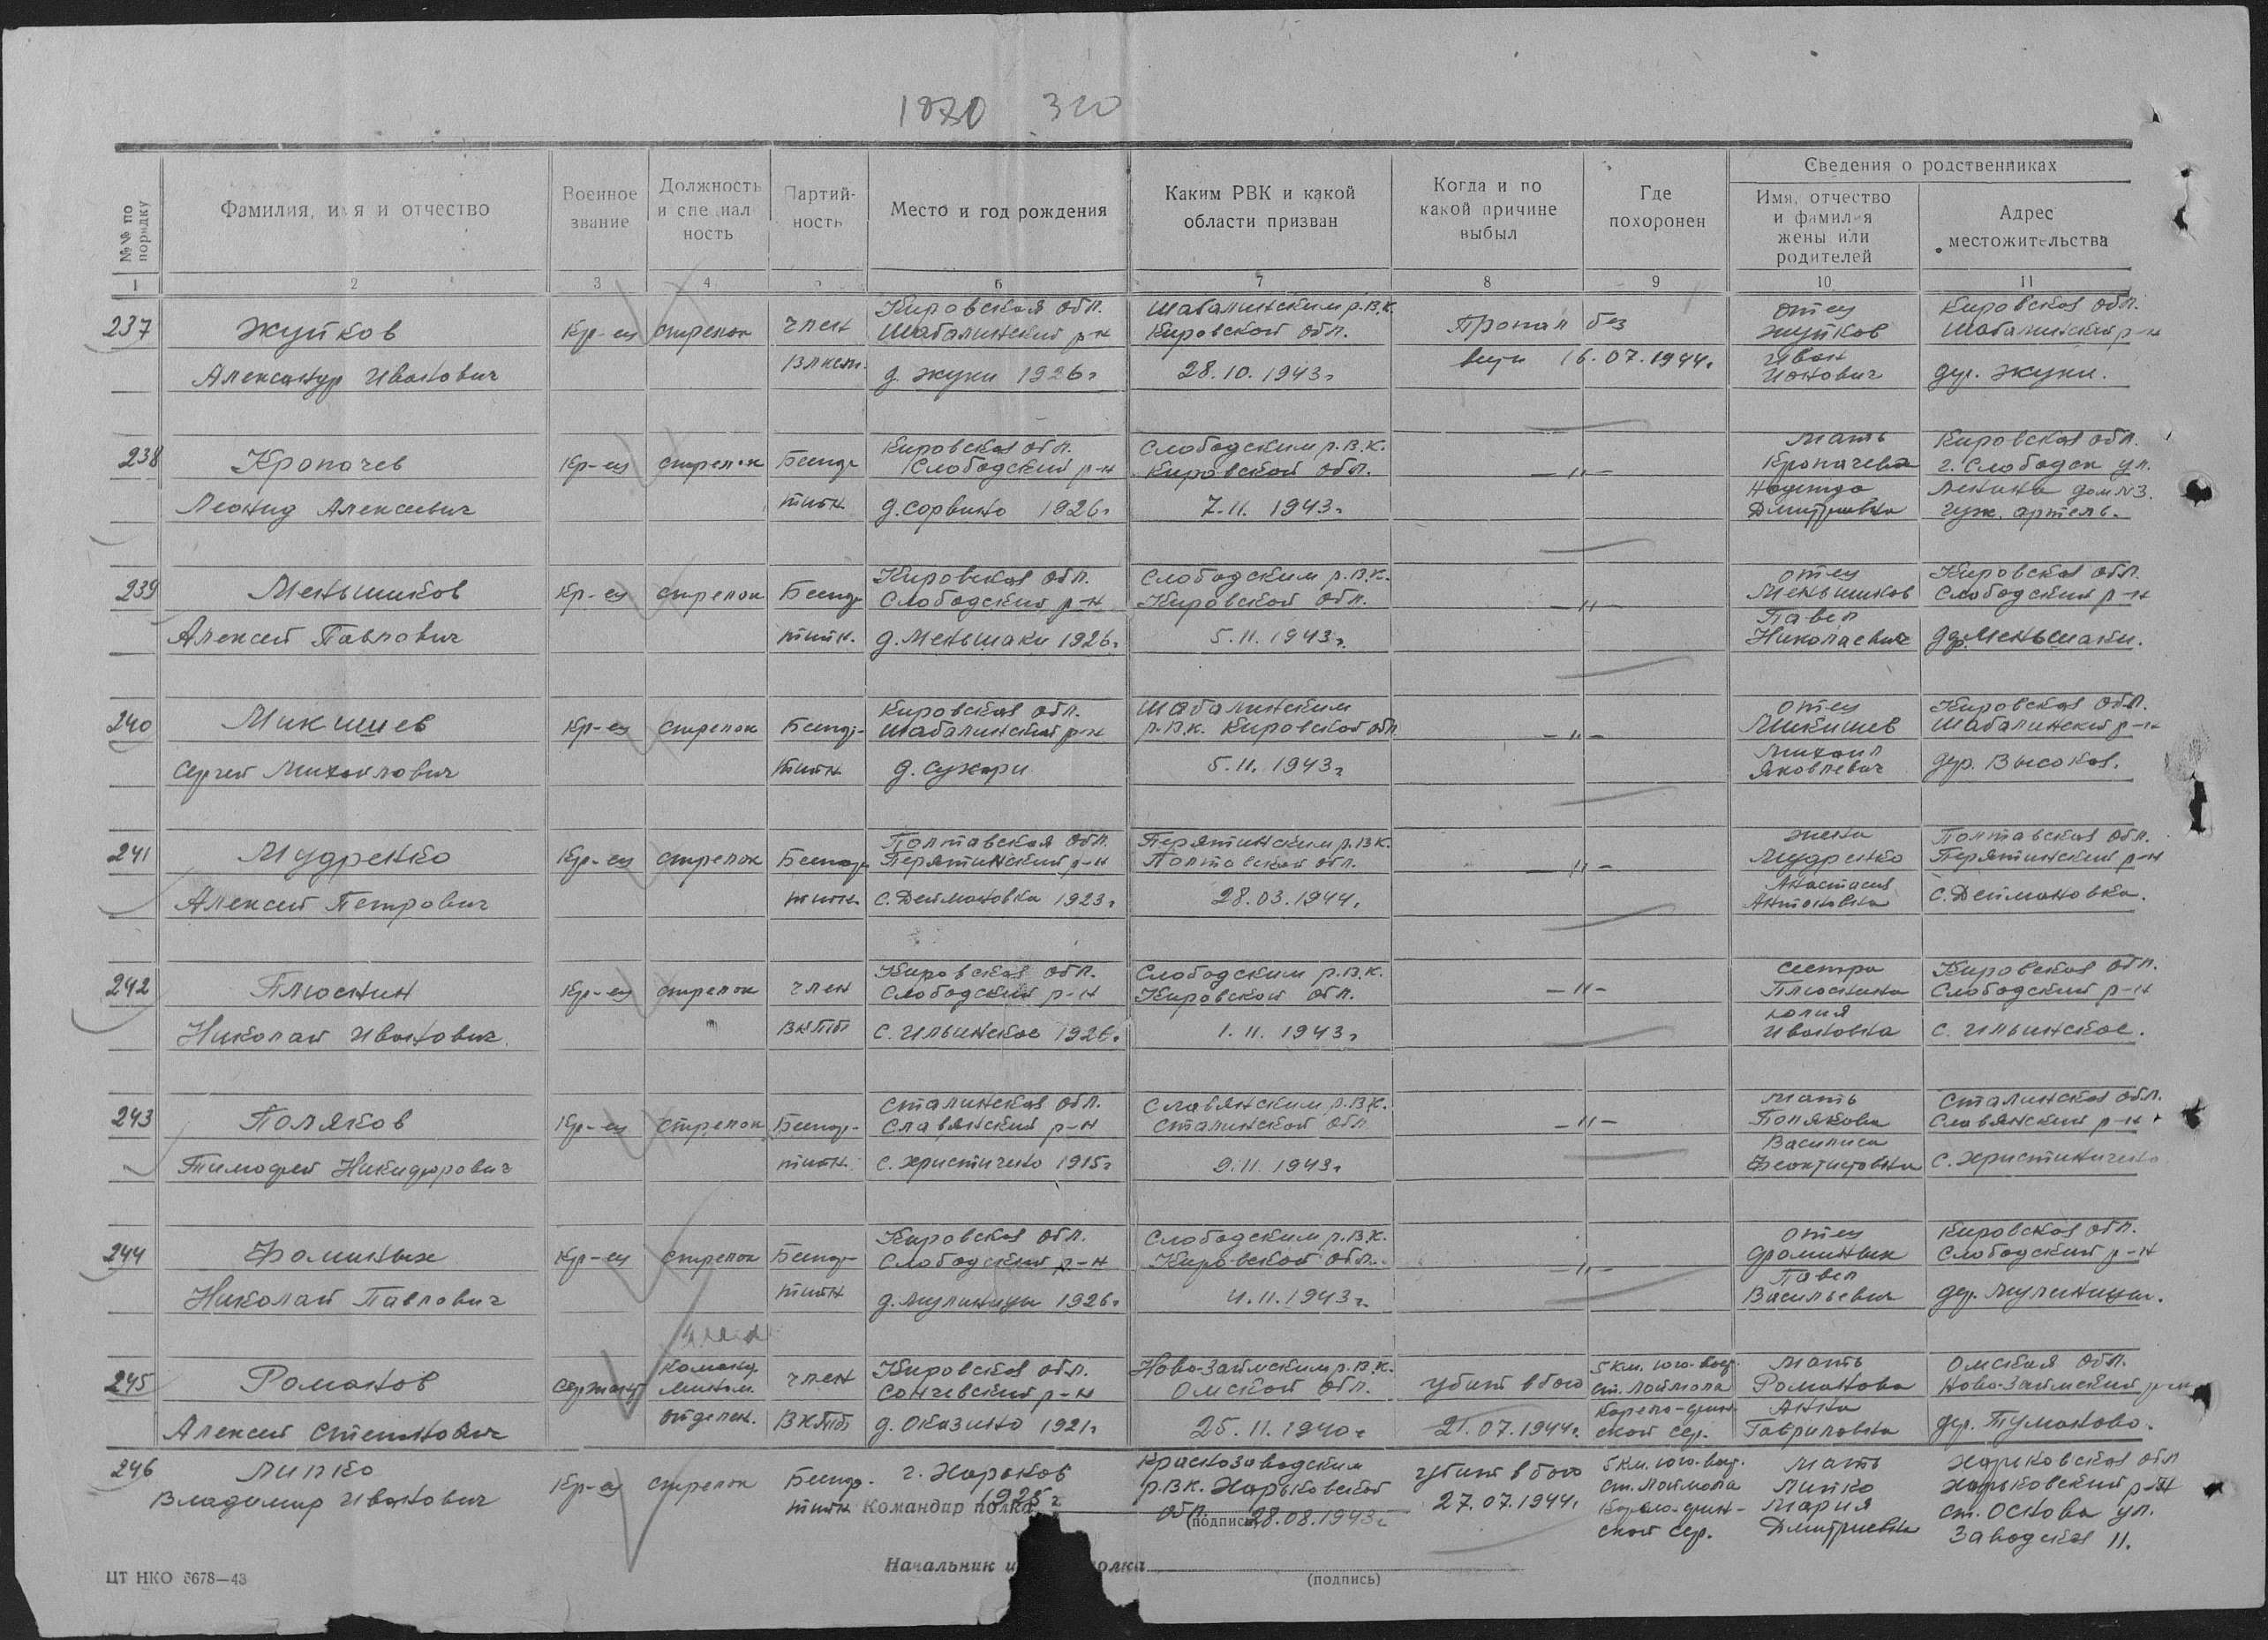 1880 310
№№ по порядку
Фамилия, имя и отчество
Военное звание
Должность и специальность
Партийность
Место и год рождения
Каким РВК и какой области призван
Когда и по какой причине выбыл
Где похоронен
Сведения о родственниках
Имя, отчество и фамилия жены или родителей
Адрес местожительства
1 2 3 4 6 7 8 9 10 11
237 Жуйков Кр-ец стрелок член Кировская обл. Шабалинский р-н Шабалинским р.в.к. Кировской обл. Пропал без отец Жуйков Кировская обл. Шабалинский р-н
Александр Иванович Влксм. д. Жуки 1926г 28.10.1943г вести 16.07.1944г. Иван Ионович дер. Жуки.
238 Кропачев Кр-ец стрелок Беспар Кировская обл. Слободский р-н Слободским р.в.к. Кировской обл. —"— мать Кропачева Кировская обл. г. Слободск ул.
Леонид Алексеевич тийн д. Сорвино 1926г 7.11.1943г Надежда Дмитриевна Ленина дом №3. гуж. артель.
239 Меньшиков Кр-ец стрелок Беспар Кировская обл. Слободский р-н Слободским р.в.к. Кировской обл. —"— отец Меньшиков Кировская обл. Слободский р-н
Алексей Павлович тийн. д. Меньшаки 1926г 5.11.1943г. Павел Николаевич дер. Меньшаки.
240 Микишев Кр-ец стрелок Беспар- Кировская обл. Шабалинский р-н Шабалинским р.в.к. Кировской обл —"— отец Микишев Кировская обл. Шабалинский р-н
Сергей Михайлович тийн д. Сухари 5.11.1943г Михаил Яковлевич дер. Высокая.
241 Мудренко Кр-ец стрелок Беспар Полтавская обл. Перятинский р-н Перятинским р.в.к. Полтавской обл. —"— жена Мудренко Полтавская обл. Перятинский р-н
Алексей Петрович тийн. с. Деймановка 1923г 28.03.1944г. Анастасия Антоновна с. Деймановка.
242 Плюснин Кр-ец стрелок член Кировская обл. Слободский р-н Слободским р.в.к. Кировской обл. —"— сестра Плюснина Кировская обл. Слободский р-н
Николай Иванович. ВКПб с. Ильинское 1926г. 1.11.1943г Ивановна с. Ильинское.
243 Поляков Кр-ец стрелок Беспар- Сталинская обл. Славянский р-н Славянским р.в.к. Сталинской обл —"— мать Полякова Сталинская обл. Славянский р-н
Тимофей Никифорович тийн. 1915г 9.11.1943г Василиса Феоктистовна
244 Фоминых Кр-ец стрелок Беспар- Кировская обл. Слободский р-н Слободским р.в.к. Кировской обл. —"— отец Фоминых Кировская обл. Слободский р-н
Николай Павлович тийн 1926г 4.11.1943г. Павел Васильевич
245 Романов сержант команд. мином. член Кировская обл. Санчевский р-н Ново-Заимским р.в.к. Омской обл. убит в бою 5 км. юго-вост. ст. Лоймола мать Романова Омская обл. Ново-Заимский р-н
Алексей Степанович отделен. ВКПб д. Оказино 1921г 25.11.1940г 21.07.1944г. Карело-финской сср. Анна Гавриловна дер. Туманово.
246 Липко Кр-ец стрелок Беспар- г. Харьков Краснозаводским р.в.к. Харьковской убит в бою 5 км. юго-вост. ст. Лоймола мать Липко Харьковская обл Харьковский р-н
Владимир Иванович тийн 1925г обл. 28.08.1943г 27.07.1944г. Карело-финской сср. Мария Дмитриевна ст. Основа ул. Заводская 11.
Командир полка
(подпись)
Начальник
полка
(подпись)
ЦТ НКО 6678—43